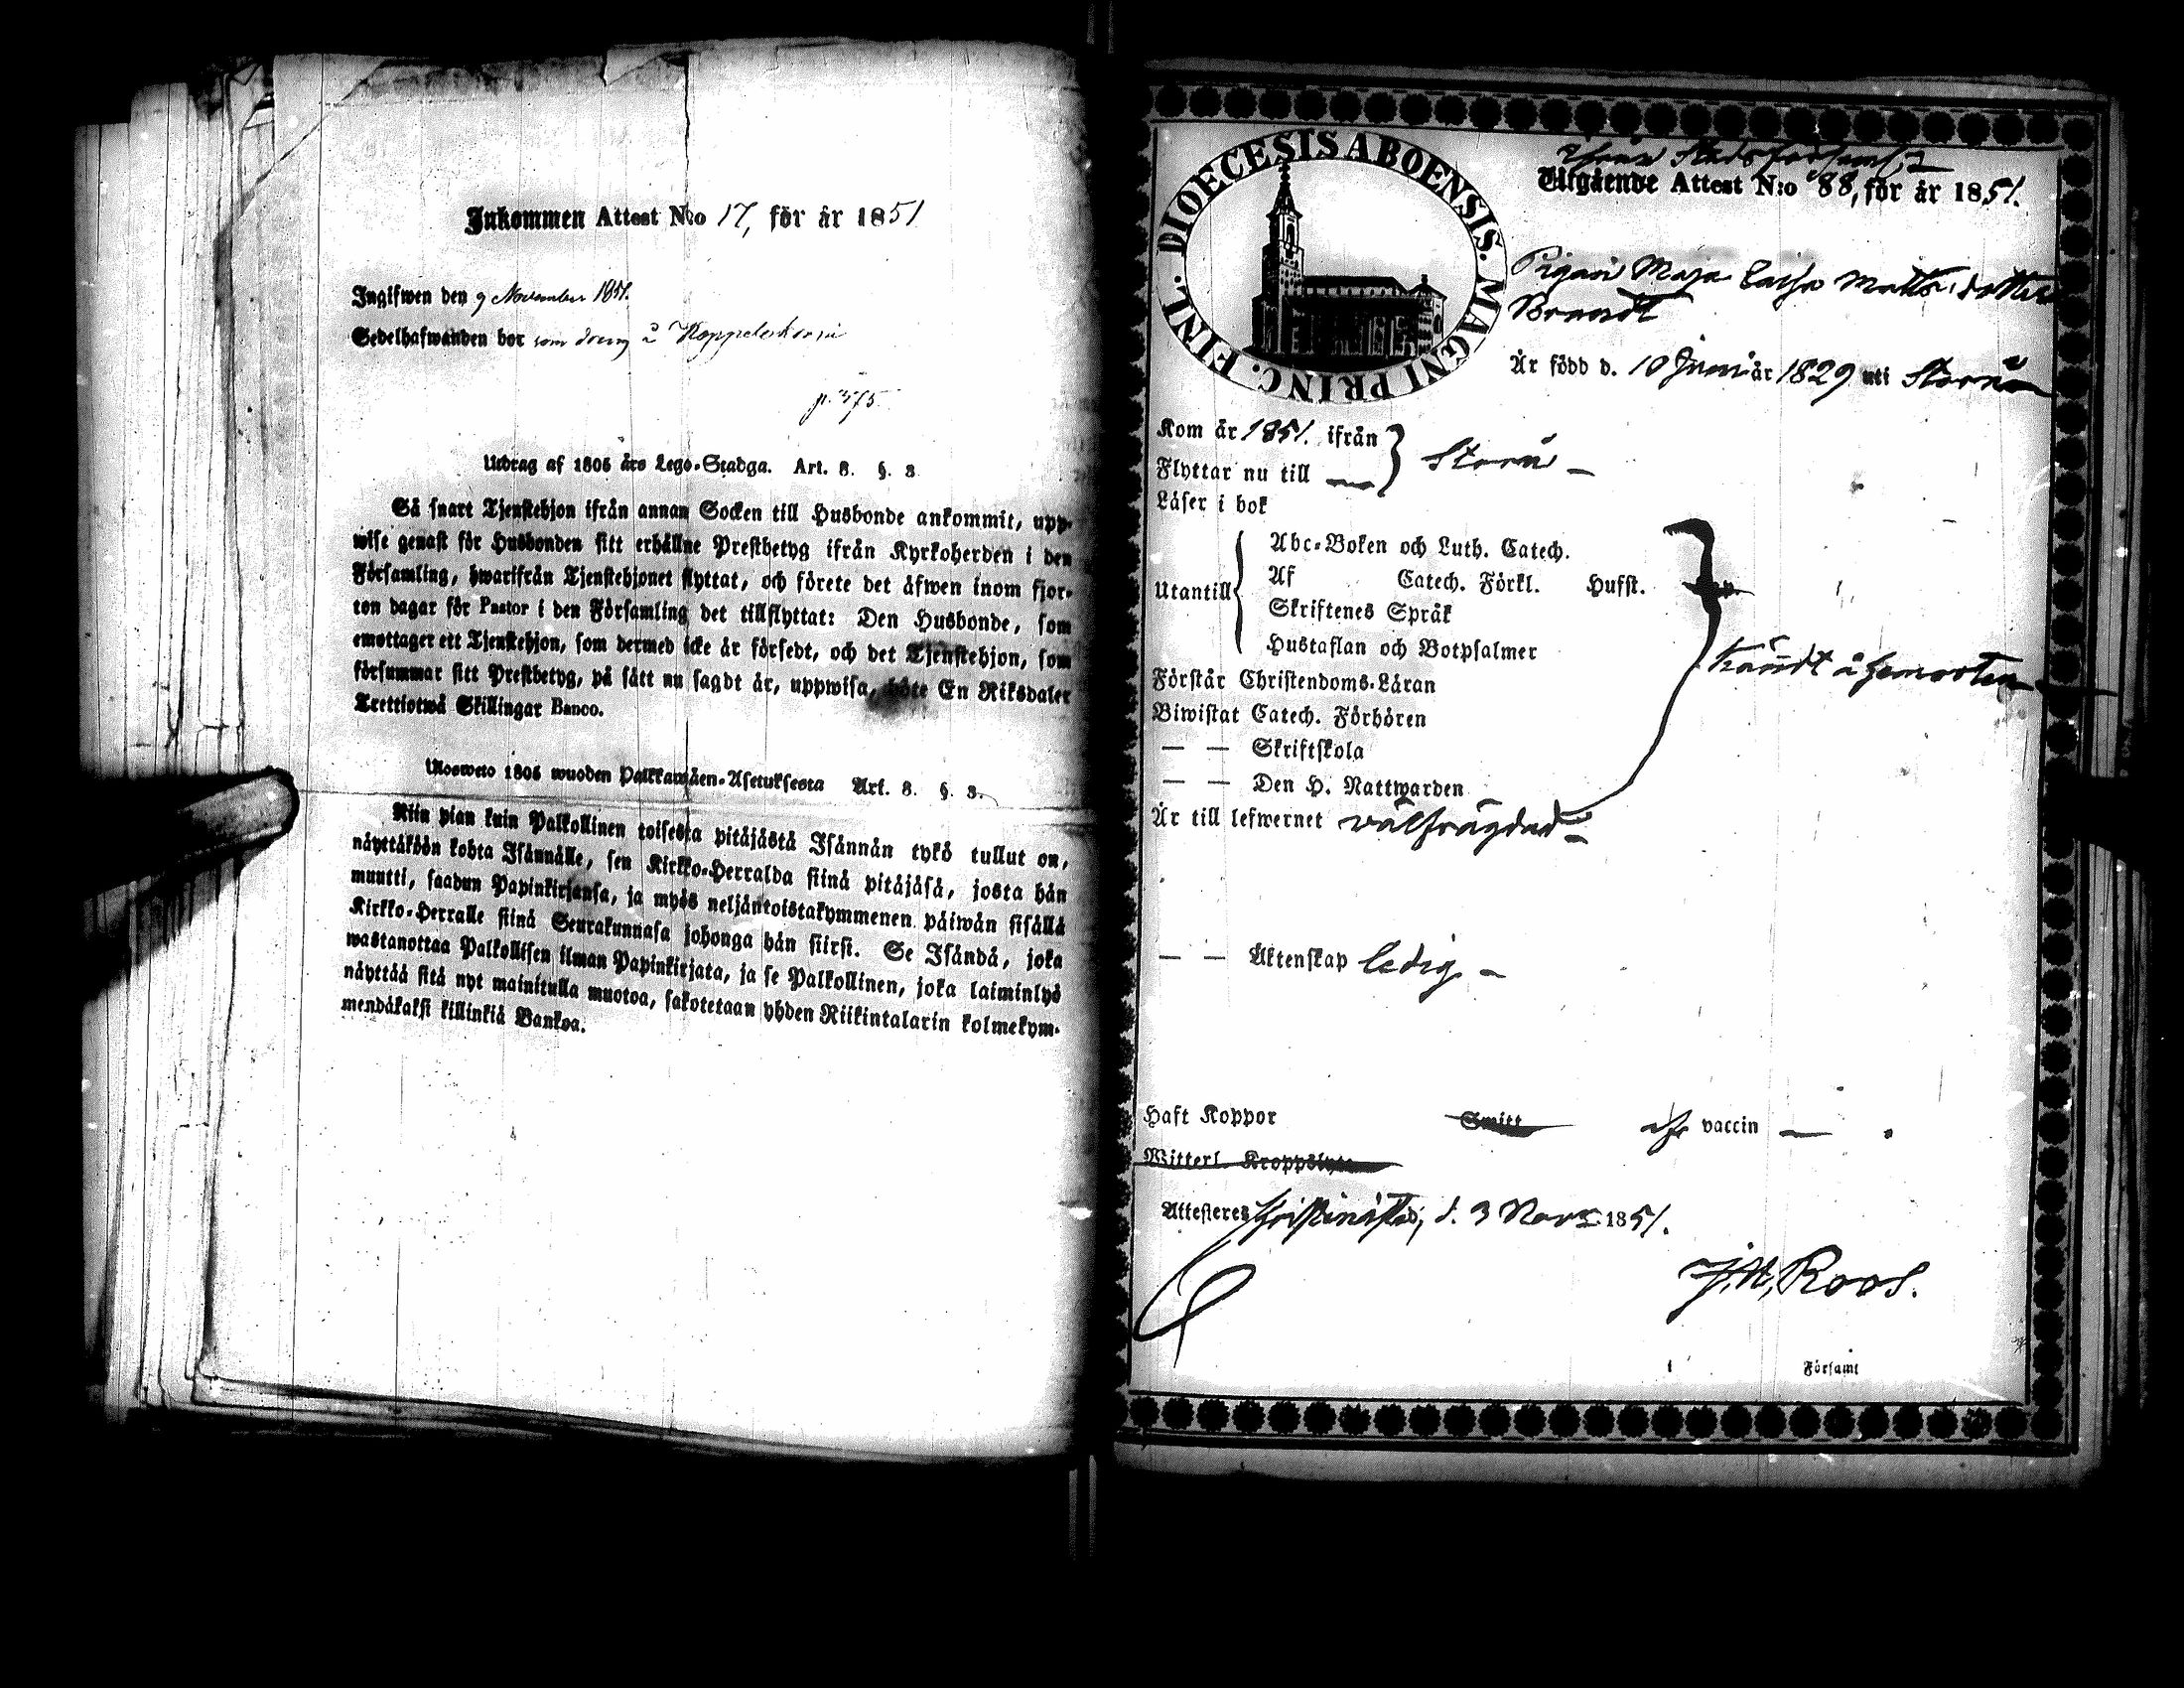 Inkommen Attest N:o 17, för år 1851
Ingifwen den 9 November 1851.
Sedelhafwanden bor som dräng å
p. 375
Utdrag af 1805 års Lego-Stadga. Art. 8. §. 3
Så snart Tjenstehjon ifrån annan Socken till Husbonde ankommit, upp-
wise genast för Husbonden sitt erhållne Prestbetyg ifrån Kyrkoherden i den
Församling, hwarifrån Tjenstehjonet flyttat, och förete det åfwen inom fjor-
ton dagar för Pastor i den Församling det tillflyttat: Den Husbonde, som
emottager ett Tjenstehjon, som dermed icke är försedt, och det Tjenstehjon, som
försummar sitt Prestbetyg, på sätt nu sagdt är, uppwisa, böte En Riksdaler
Trettiotwå Skillingar Banco.
Ulosweto 1805 wuoden Palkkawäen-Asetuksesta Art. 8. §. 3.
Niin pian kuin Palkollinen toisesta pitäjästä Isännän tykö tullut on,
näyttäköön kohta Isännälle, sen Kirkko-Herralda siinä pitäjäsä, josta hän
muutti, saadun Papinkirjansa, ja myös neljäntoistakymmenen päiwän sisällä
Kirkko-Herralle siinä Seurakunnasa johonga hän siirsi. Se Isändä, joka
wastanottaa Palkollisen ilman Papinkirjata, ja se Palkollinen, joka laiminlyö
näyttää sitä nyt mainitulla muotoa, sakotetaan yhden Riikintalarin kolmekym-
mendäkaksi killinkiä Bankoa.
DIOECESIS ABOENSIS. MAGNI PRINC. FINL.
Stadsförsaml:s
Utgående Attest N:o 88, för år 1851.
Pigan Maja Caisa Mattsdotter
Brandt
Är född d. 10 Juni år 1829 uti Storå
Kom år 1851. ifrån
Flyttar nu till } Storå
Läser i bok
Utantill
Abc-Boken och Luth. Catech.
Af Catech. Förkl. Hufst.
Skriftenes Språk
Hustaflan och Botpsalmer
Kändt å hemorten
Förstår Christendoms-Läran
Biwistat Catech. Förhören
— — Skriftskola
— — Den H. Nattwarden
Är till lefwernet wälfrägdad
— — Äktenskap ledig
Haft Koppor Smitt vaccin
Witterl. Kroppslyte
Attesteres Christinestad, d. 3 Nov: 1851.
J. N. Roos.
i Församl